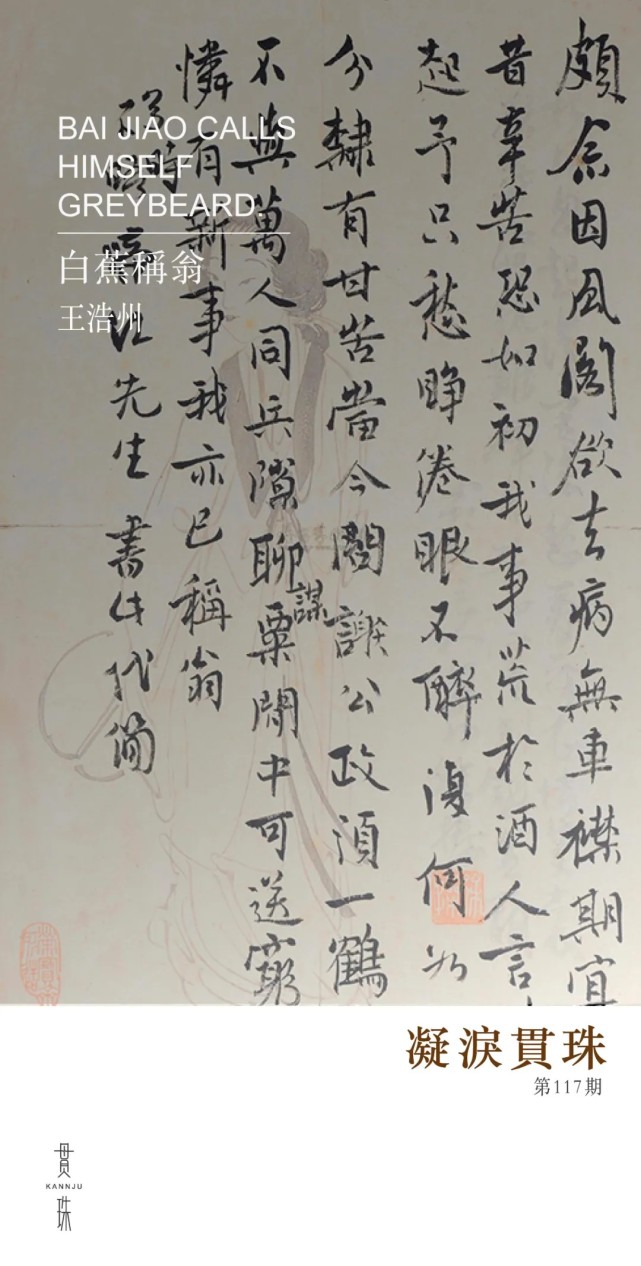 BAI JIAO CALLS
HIMSELF
GREYBEARD.
白蕉稱翁
王浩州
頗念因風閣欲去病無車襟期宜
昔辛苦恐如初我事荒於酒人言
起予只愁睜倦眼不醉復何如
分隸有甘苦當今閱謝公政須一鶴
不與萬人同兵隙聊謀粟閙中可送窮
憐有新事我亦已稱翁
先生書此代簡
凝淚貫珠
第117期
貫
KANNJU
珠